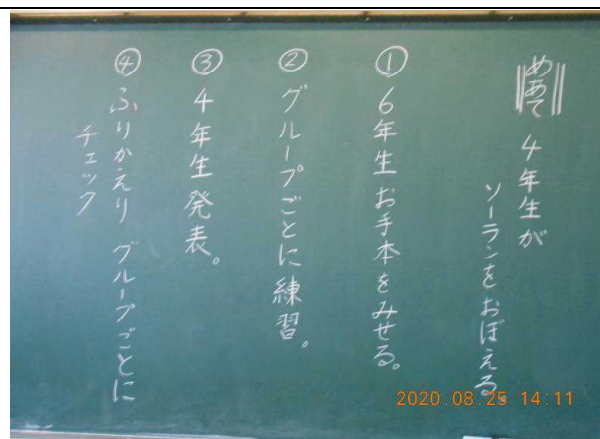 めあて 4年生が
ソーランをおぼえる。
① 6年生お手本をみせる。
② グループごとに練習。
③ 4年生発表。
④ ふりかえり グループごとに
チェック
2020.08.25 14:11